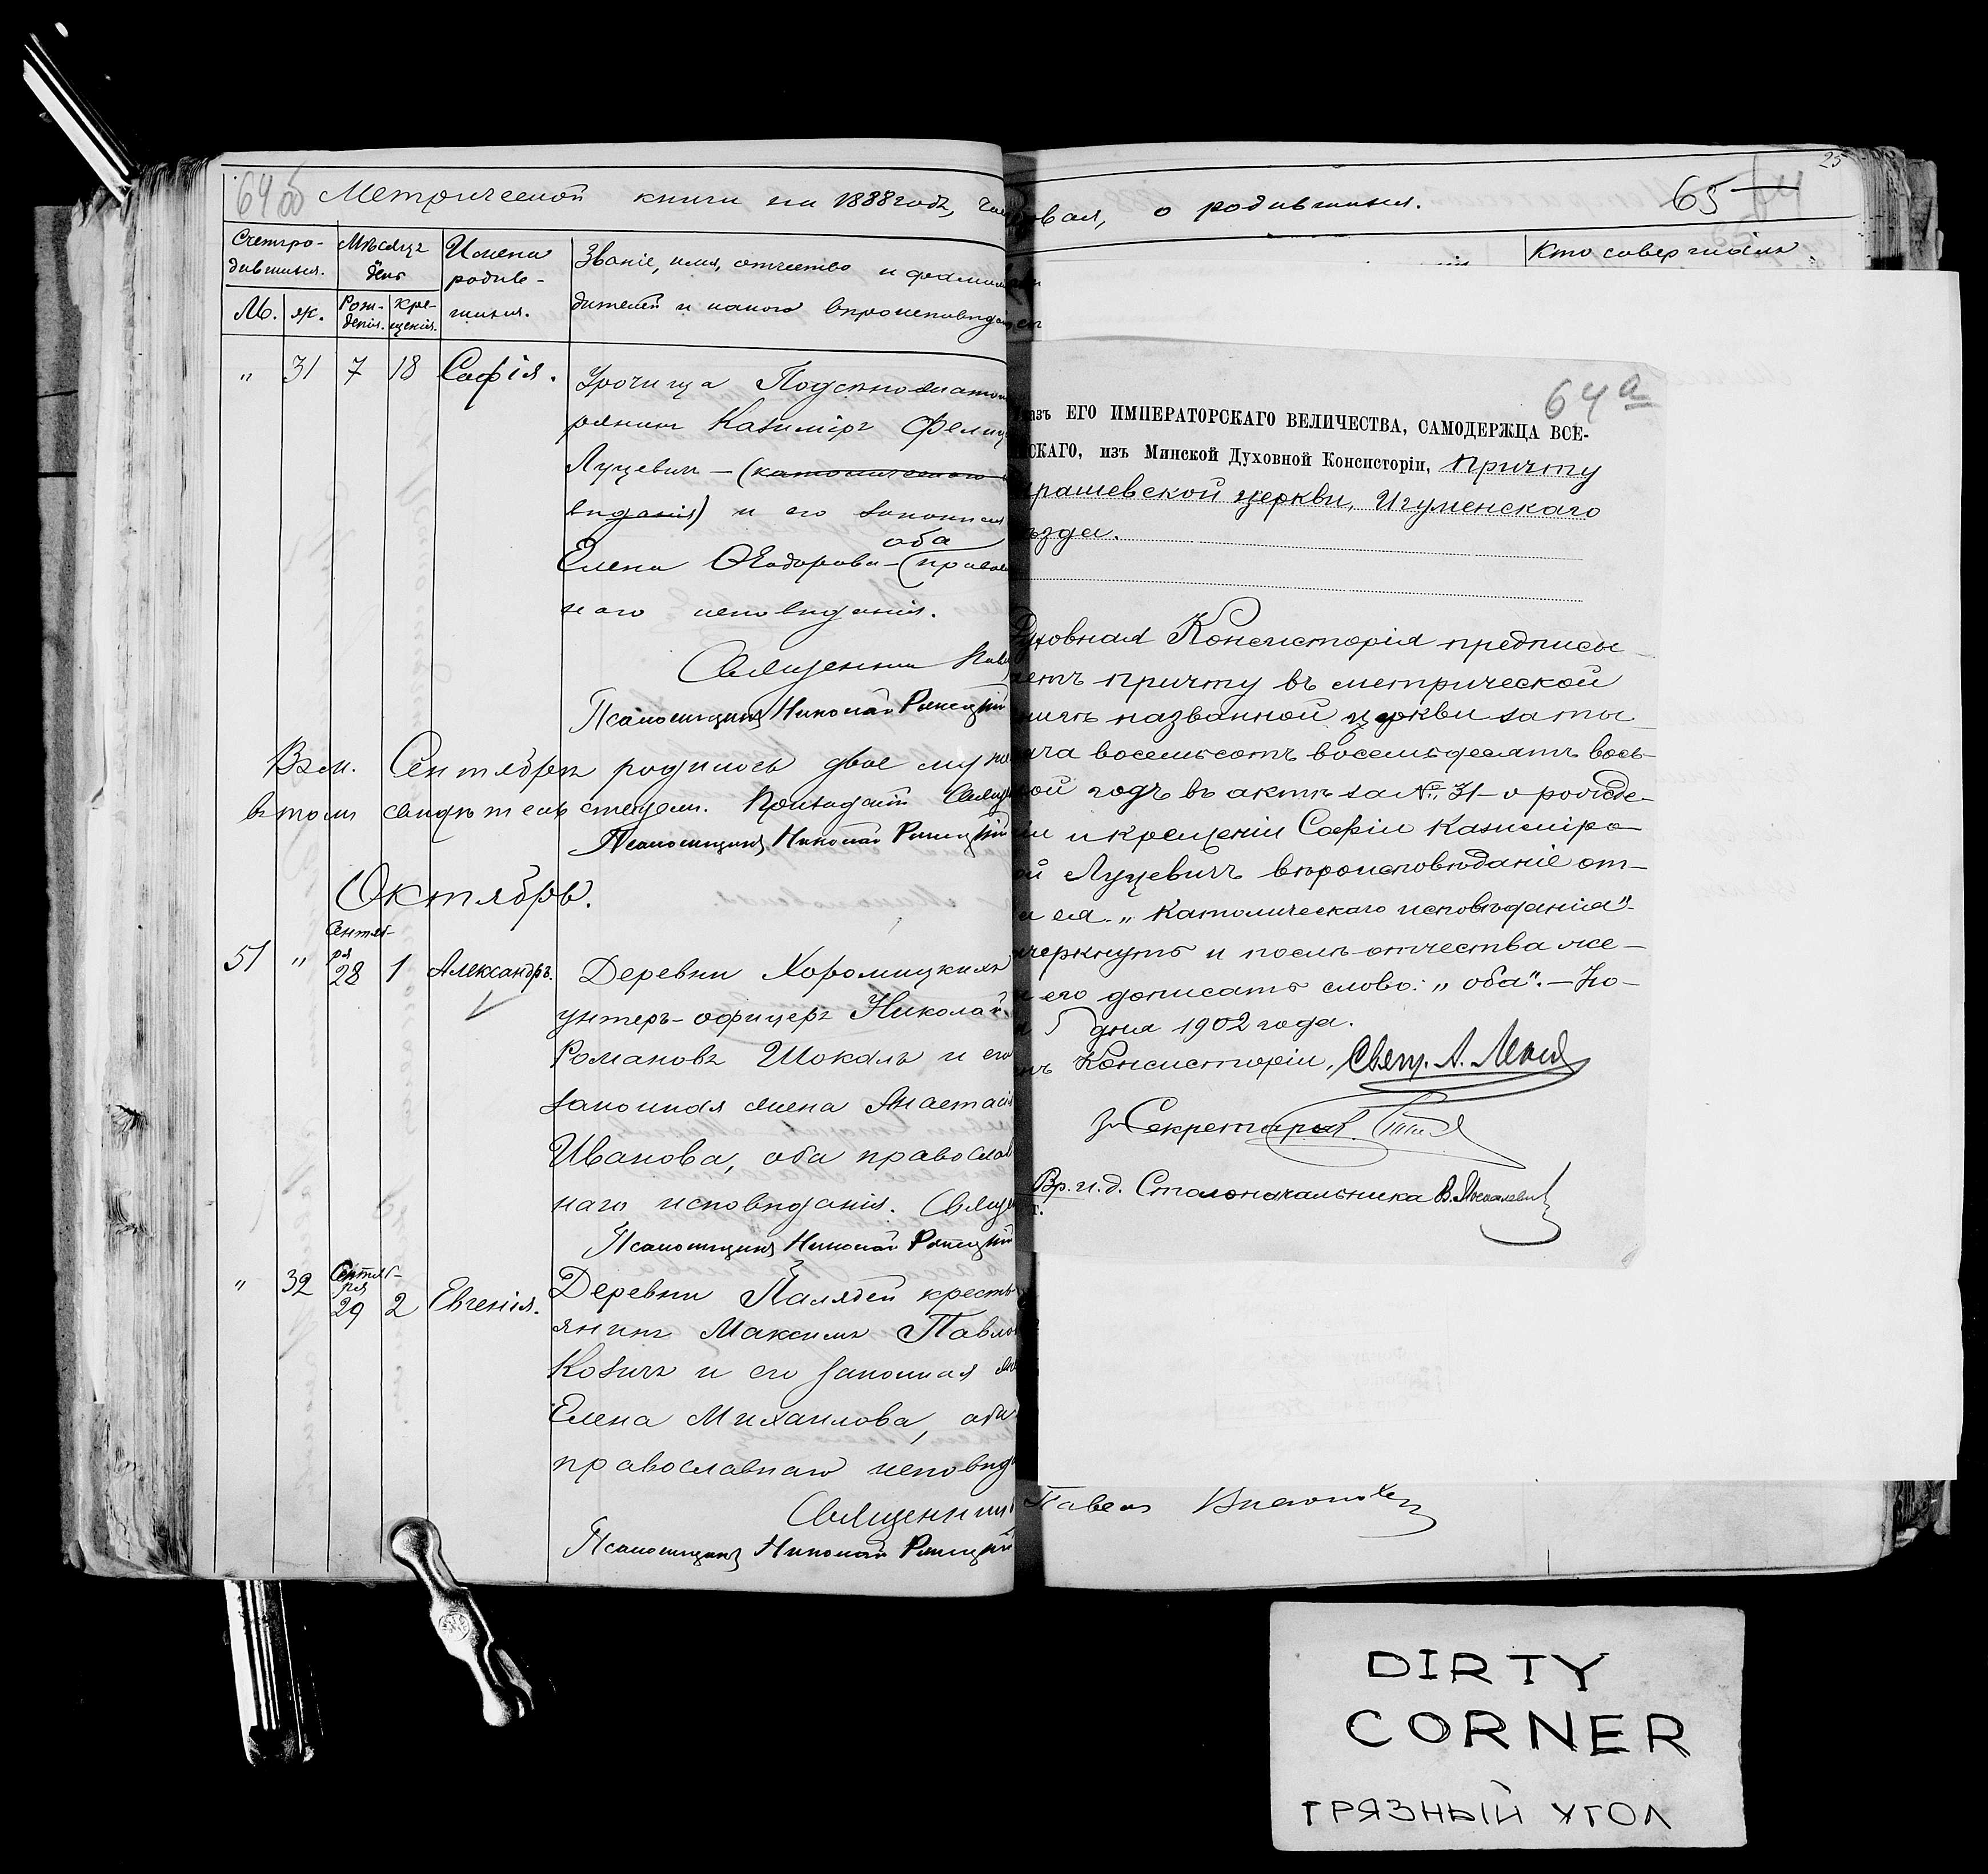 64 об Метрической книги на 1888 годъ, час
Счетъ ро-
дившихся.
Мѣсяцъ
и
день
Имена
родив-
шихся.
Званіе, имя, отчество и фамилія
дителей и какого вѣроисповѣданія
М. ж. Рож-
денія. Кре-
щенія.
„ 31 7 18 Софія. Урочища
рянинъ Казиміръ Фелиц
Луцевичъ – (католическаго
вѣданія) и его законная
оба
Елена Ѳеодорова – (правос
наго исповѣданія.
Священникъ Павел
Псаломщикъ Николай
Въ м. Сентябрѣ родилось двое муж
въ томъ свидѣтельствуемъ. Приходскій Свящ
Псаломщикъ Николай
Октябрь.
51 „ Сентяб-
ря
28 1 Александръ. Деревни Хоромицкихъ
унтеръ-офицеръ Николай
Романовъ Шокаль и его
законная жена Анастасія
Иванова, оба православ
наго исповѣданія. Свящ
Псаломщикъ Николай
„ 32 Сентяб-
ря
29 2 Евгенія. Деревни крестья
янинъ Максимъ Павлов
Козичъ и его законная же
Елена Михаилова, оба
православнаго исповѣд
Священникъ
Псаломщикъ Николай
рвая, о родившихся. 65 25
Кто совершалъ
64 а
казъ ЕГО ИМПЕРАТОРСКАГО ВЕЛИЧЕСТВА, САМОДЕРЖЦА ВСЕ-
СКАГО, изъ Минской Духовной Консисторіи, Причту
рашевской церкви, Игуменскаго
ѣзда.
уховная Консисторія предписы-
аетъ причту въ метрической
книгѣ названной церкви за ты-
яча восемьсотъ восемьдесятъ вось-
мой годъ въ актѣ за № 31 – о рожде-
іи и крещеніи Софіи Казиміро-
ой Луцевичъ вѣроисповѣданіе от-
а ея „католическаго исповѣданія"
черкнуть и послѣ отчества же-
его дописать слово: „оба". – Но-
5 дня 1902 года.
нъ Консисторіи, Свящ. А.
Секретарь
Вр. и. д. Столоначальника В.
Павелъ
DIRTY
CORNER
ГРЯЗНЫЙ УГОЛ